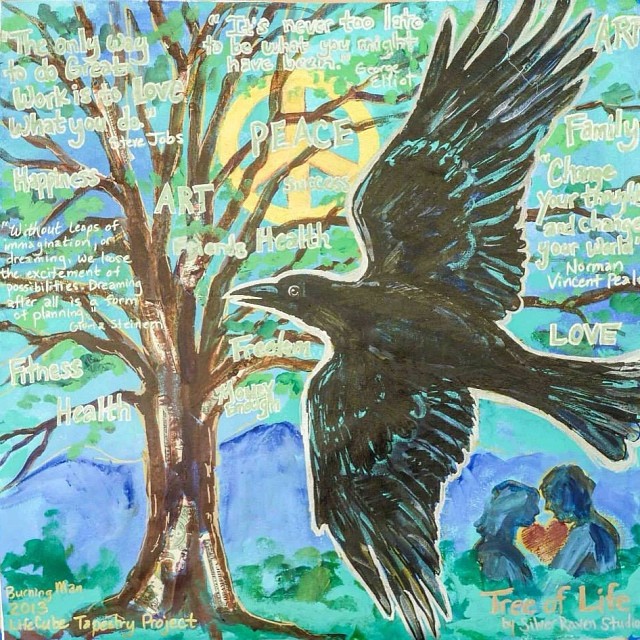 "The only way
to do Great
Work is to Love
What you do.
Steve Jobs
"It's never too late
to be what you might
have been."
George
Elliot
ART
PEACE
Success
Family
Happiness
ART
Friends Health
"Change
your thoughts
and change
your world
Norman
Vincent Peale
"Without leaps of
immagination, or
dreaming, we lose
the excitement of
possibilities. Dreaming
after all is a form
of planning"
Gloria Steinem
LOVE
Freedom
Fitness
Money
Enough
Health
Burning Man
2013
LifeCube Tapestry Project
Tree of Life
by Silver Raven Studio